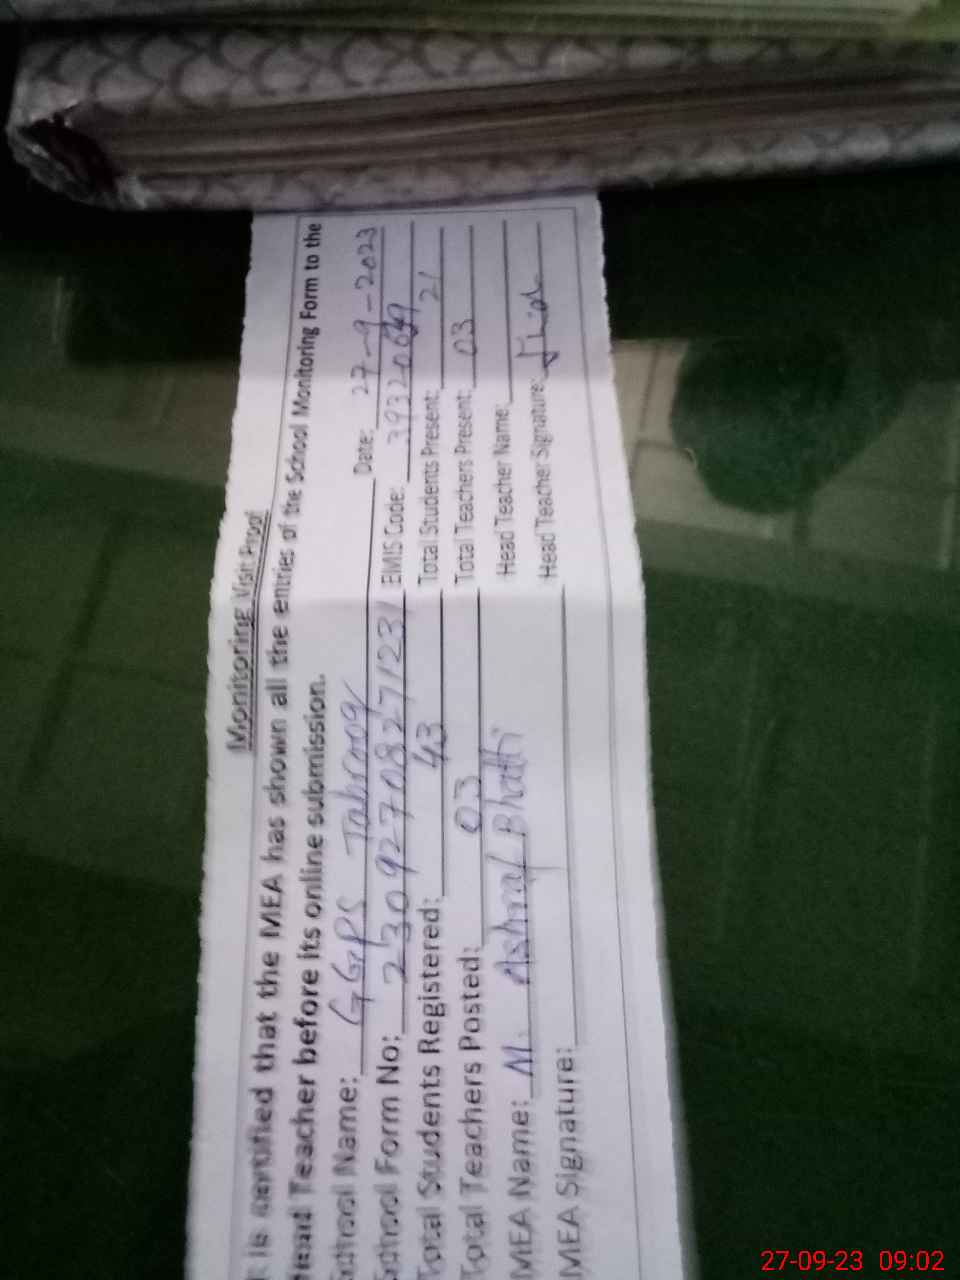 Monitoring Visit Proof
is certified that the MEA has shown all the entries of the School Monitoring Form to the
Head Teacher before its online submission.
School Name: GGPS Tabroog Date: 27-9-2023
School Form No: 2309270827123 EMIS Code: 3932
Total Students Registered: 43 Total Students Present: 21
Total Teachers Posted: 03 Total Teachers Present: 03
MEA Name: M. Ashraf Bhatti Head Teacher Name:
MEA Signature: Head Teacher Signature:
27-09-23 09:02